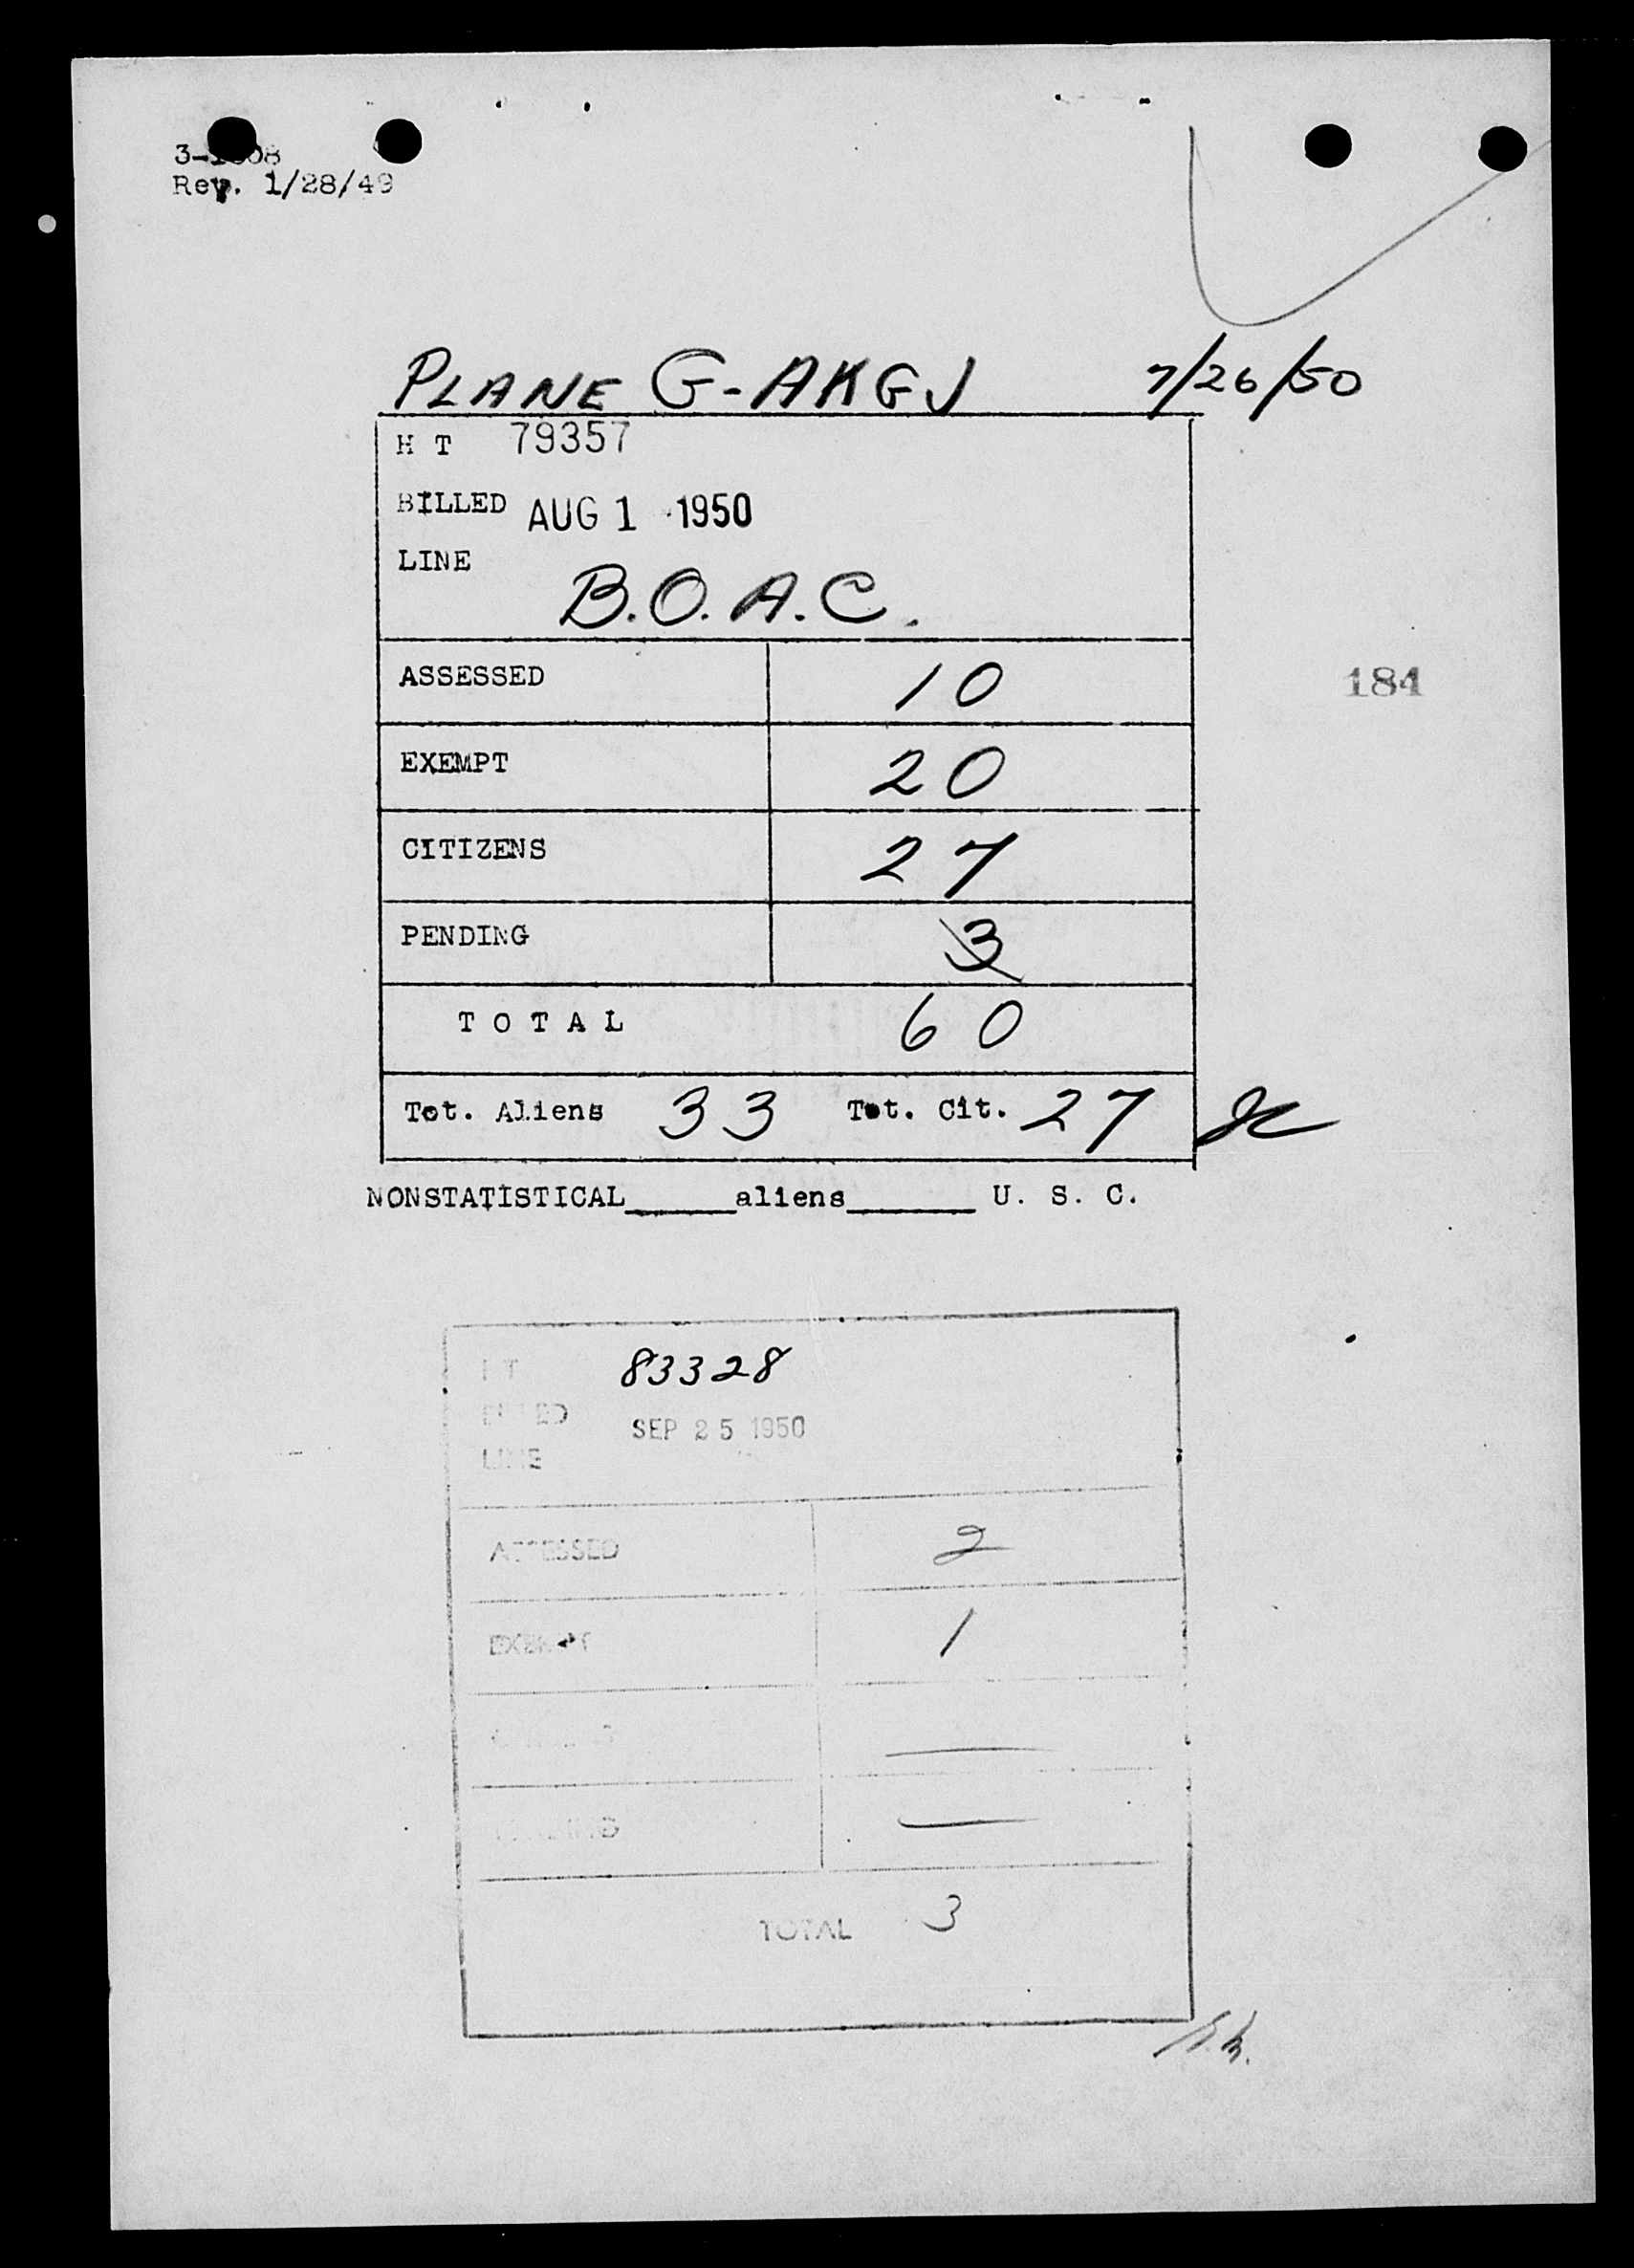 Rev. 1/28/49
PLANE G-AKGJ 7/26/50
H T 79357
BILLED AUG 1 1950
LINE
B.O.A.C.
ASSESSED 10
184
EXEMPT 20
CITIZENS 27
PENDING 3
T O T A L 60
Tot. Aliens 33 Tot. Cit. 27
NONSTATISTICAL______aliens_______ U. S. C.
83328
SEP 25 1950
LINE
ASSESSED 2
EXEMPT 1
TOTAL 3